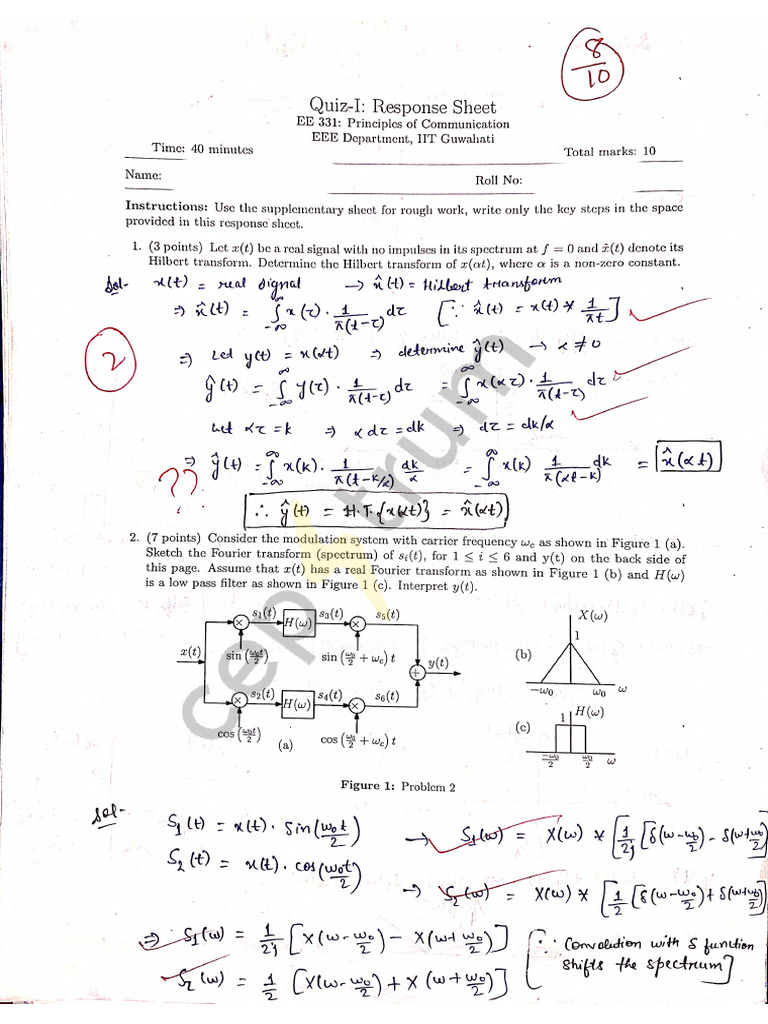 8/10
Quiz-I: Response Sheet
EE 331: Principles of Communication
EEE Department, IIT Guwahati
Time: 40 minutes Total marks: 10
Name: Roll No:
Instructions: Use the supplementary sheet for rough work, write only the key steps in the space
provided in this response sheet.
1. (3 points) Let x(t) be a real signal with no impulses in its spectrum at f = 0 and x̂(t) denote its
Hilbert transform. Determine the Hilbert transform of x(αt), where α is a non-zero constant.
Sol- x(t) = real signal → x̂(t) = Hilbert transform
⇒ x̂(t) = ∫_{-∞}^{∞} x(τ) · 1/π(t-τ) dτ [∵ x̂(t) = x(t) * 1/πt]
2
⇒ Let y(t) = x(αt) ⇒ determine ŷ(t) → α ≠ 0
ŷ(t) = ∫_{-∞}^{∞} y(τ) · 1/π(t-τ) dτ = ∫_{-∞}^{∞} x(ατ) · 1/π(t-τ) dτ
Let ατ = k ⇒ α dτ = dk ⇒ dτ = dk/α
⇒ ŷ(t) = ∫_{-∞}^{∞} x(k) · 1/π(t-k/α) dk/α = ∫_{-∞}^{∞} x(k) 1/π(αt-k) dk = x̂(αt)
??
∴ ŷ(t) = H.T.{x(αt)} = x̂(αt)
2. (7 points) Consider the modulation system with carrier frequency ω_c as shown in Figure 1 (a).
Sketch the Fourier transform (spectrum) of s_i(t), for 1 ≤ i ≤ 6 and y(t) on the back side of
this page. Assume that x(t) has a real Fourier transform as shown in Figure 1 (b) and H(ω)
is a low pass filter as shown in Figure 1 (c). Interpret y(t).
s₁(t) H(ω) s₃(t) s₅(t)
x(t) sin (ω₀t/2) sin (ω₀/2 + ω_c) t y(t)
s₂(t) H(ω) s₄(t) s₆(t)
cos (ω₀t/2) (a) cos (ω₀/2 + ω_c) t
X(ω)
1
(b)
-ω₀ ω₀ ω
(c) 1 H(ω)
-ω₀/2 ω₀/2 ω
Figure 1: Problem 2
ceptrum
Sol-
S₁(t) = x(t) · sin(ω₀t/2) → S₁(ω) = X(ω) * [1/2j [δ(ω-ω₀/2) - δ(ω+ω₀/2)]
S₂(t) = x(t) · cos(ω₀t/2) → S₂(ω) = X(ω) * [1/2 [δ(ω-ω₀/2) + δ(ω+ω₀/2)]
⇒ S₁(ω) = 1/2j [X(ω-ω₀/2) - X(ω+ω₀/2)] [∵ Convolution with δ function
S₂(ω) = 1/2 [X(ω-ω₀/2) + X(ω+ω₀/2)] shifts the spectrum]